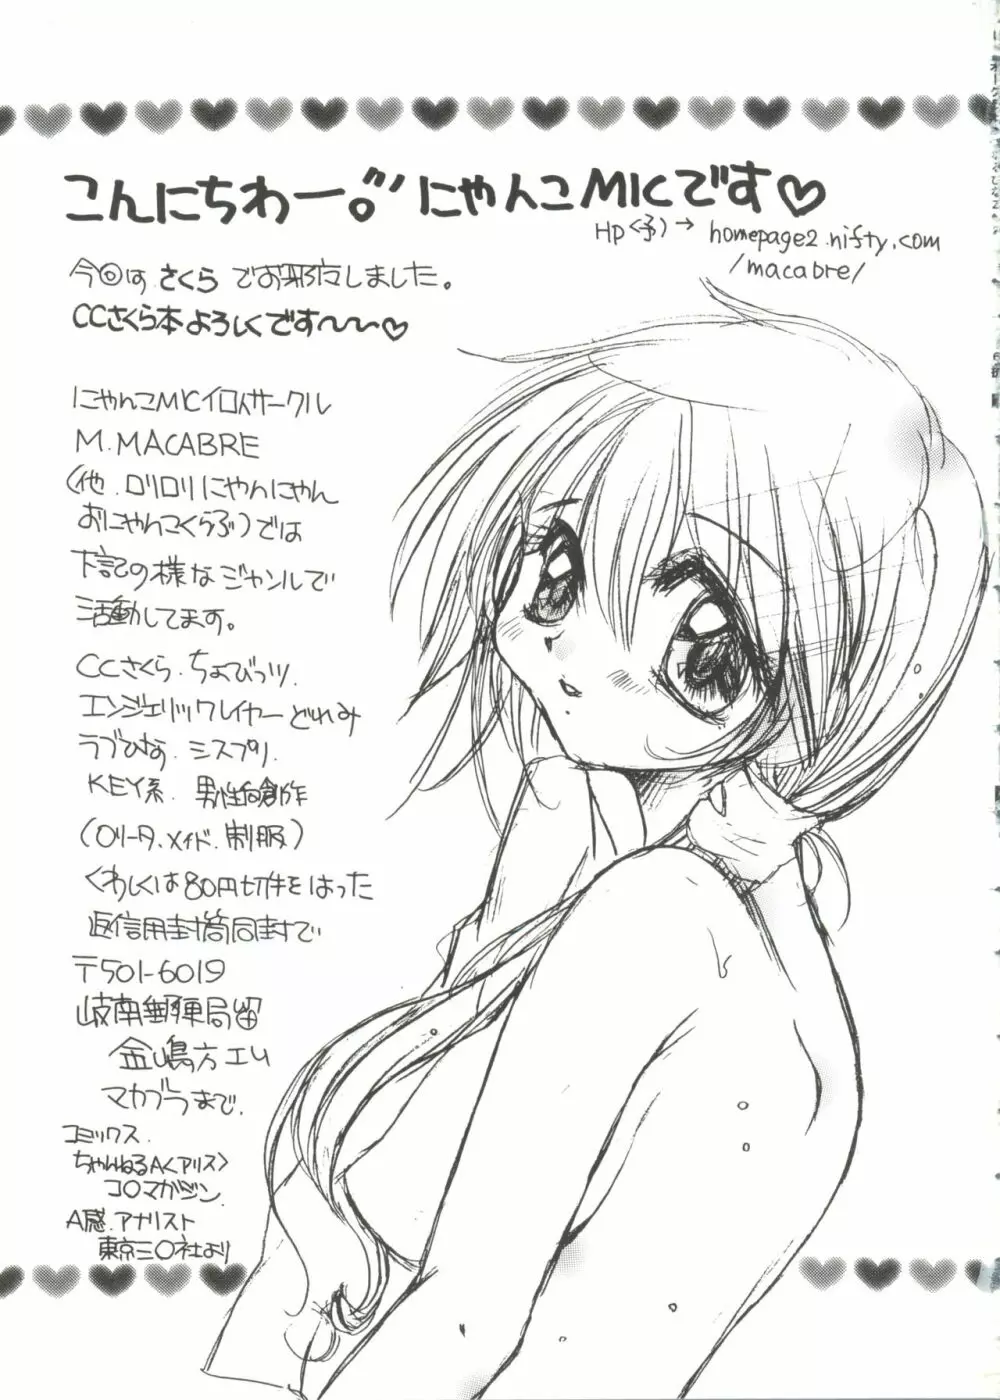 こんにちわー。にゃんこMICです♡
HP(予)→ homepage2.nifty.com
/macabre/
今回はさくらでお邪魔しました。
CCさくら本よろしくです〜〜♡
にゃんこMIC サークル
M.MACABRE
(他.ロリロリにゃんにゃん
おにゃんこくらぶ)では
下記の様なジャンルで
活動してます。
CCさくら.ちょびっツ.
エンジェリックレイヤー どれみ
ラブひな.シスプリ.
KEY系.男性向創作
(ロリータ.メイド.制服)
くわしくは80円切手をはった
返信用封筒同封で
〒501-6019
岐南郵便局留
金嶋方エム
マカブラまで.
コミックス.
ちゃんねるA<アリス>
コ〇マガジン.
A感.アナリスト
東京三〇社より